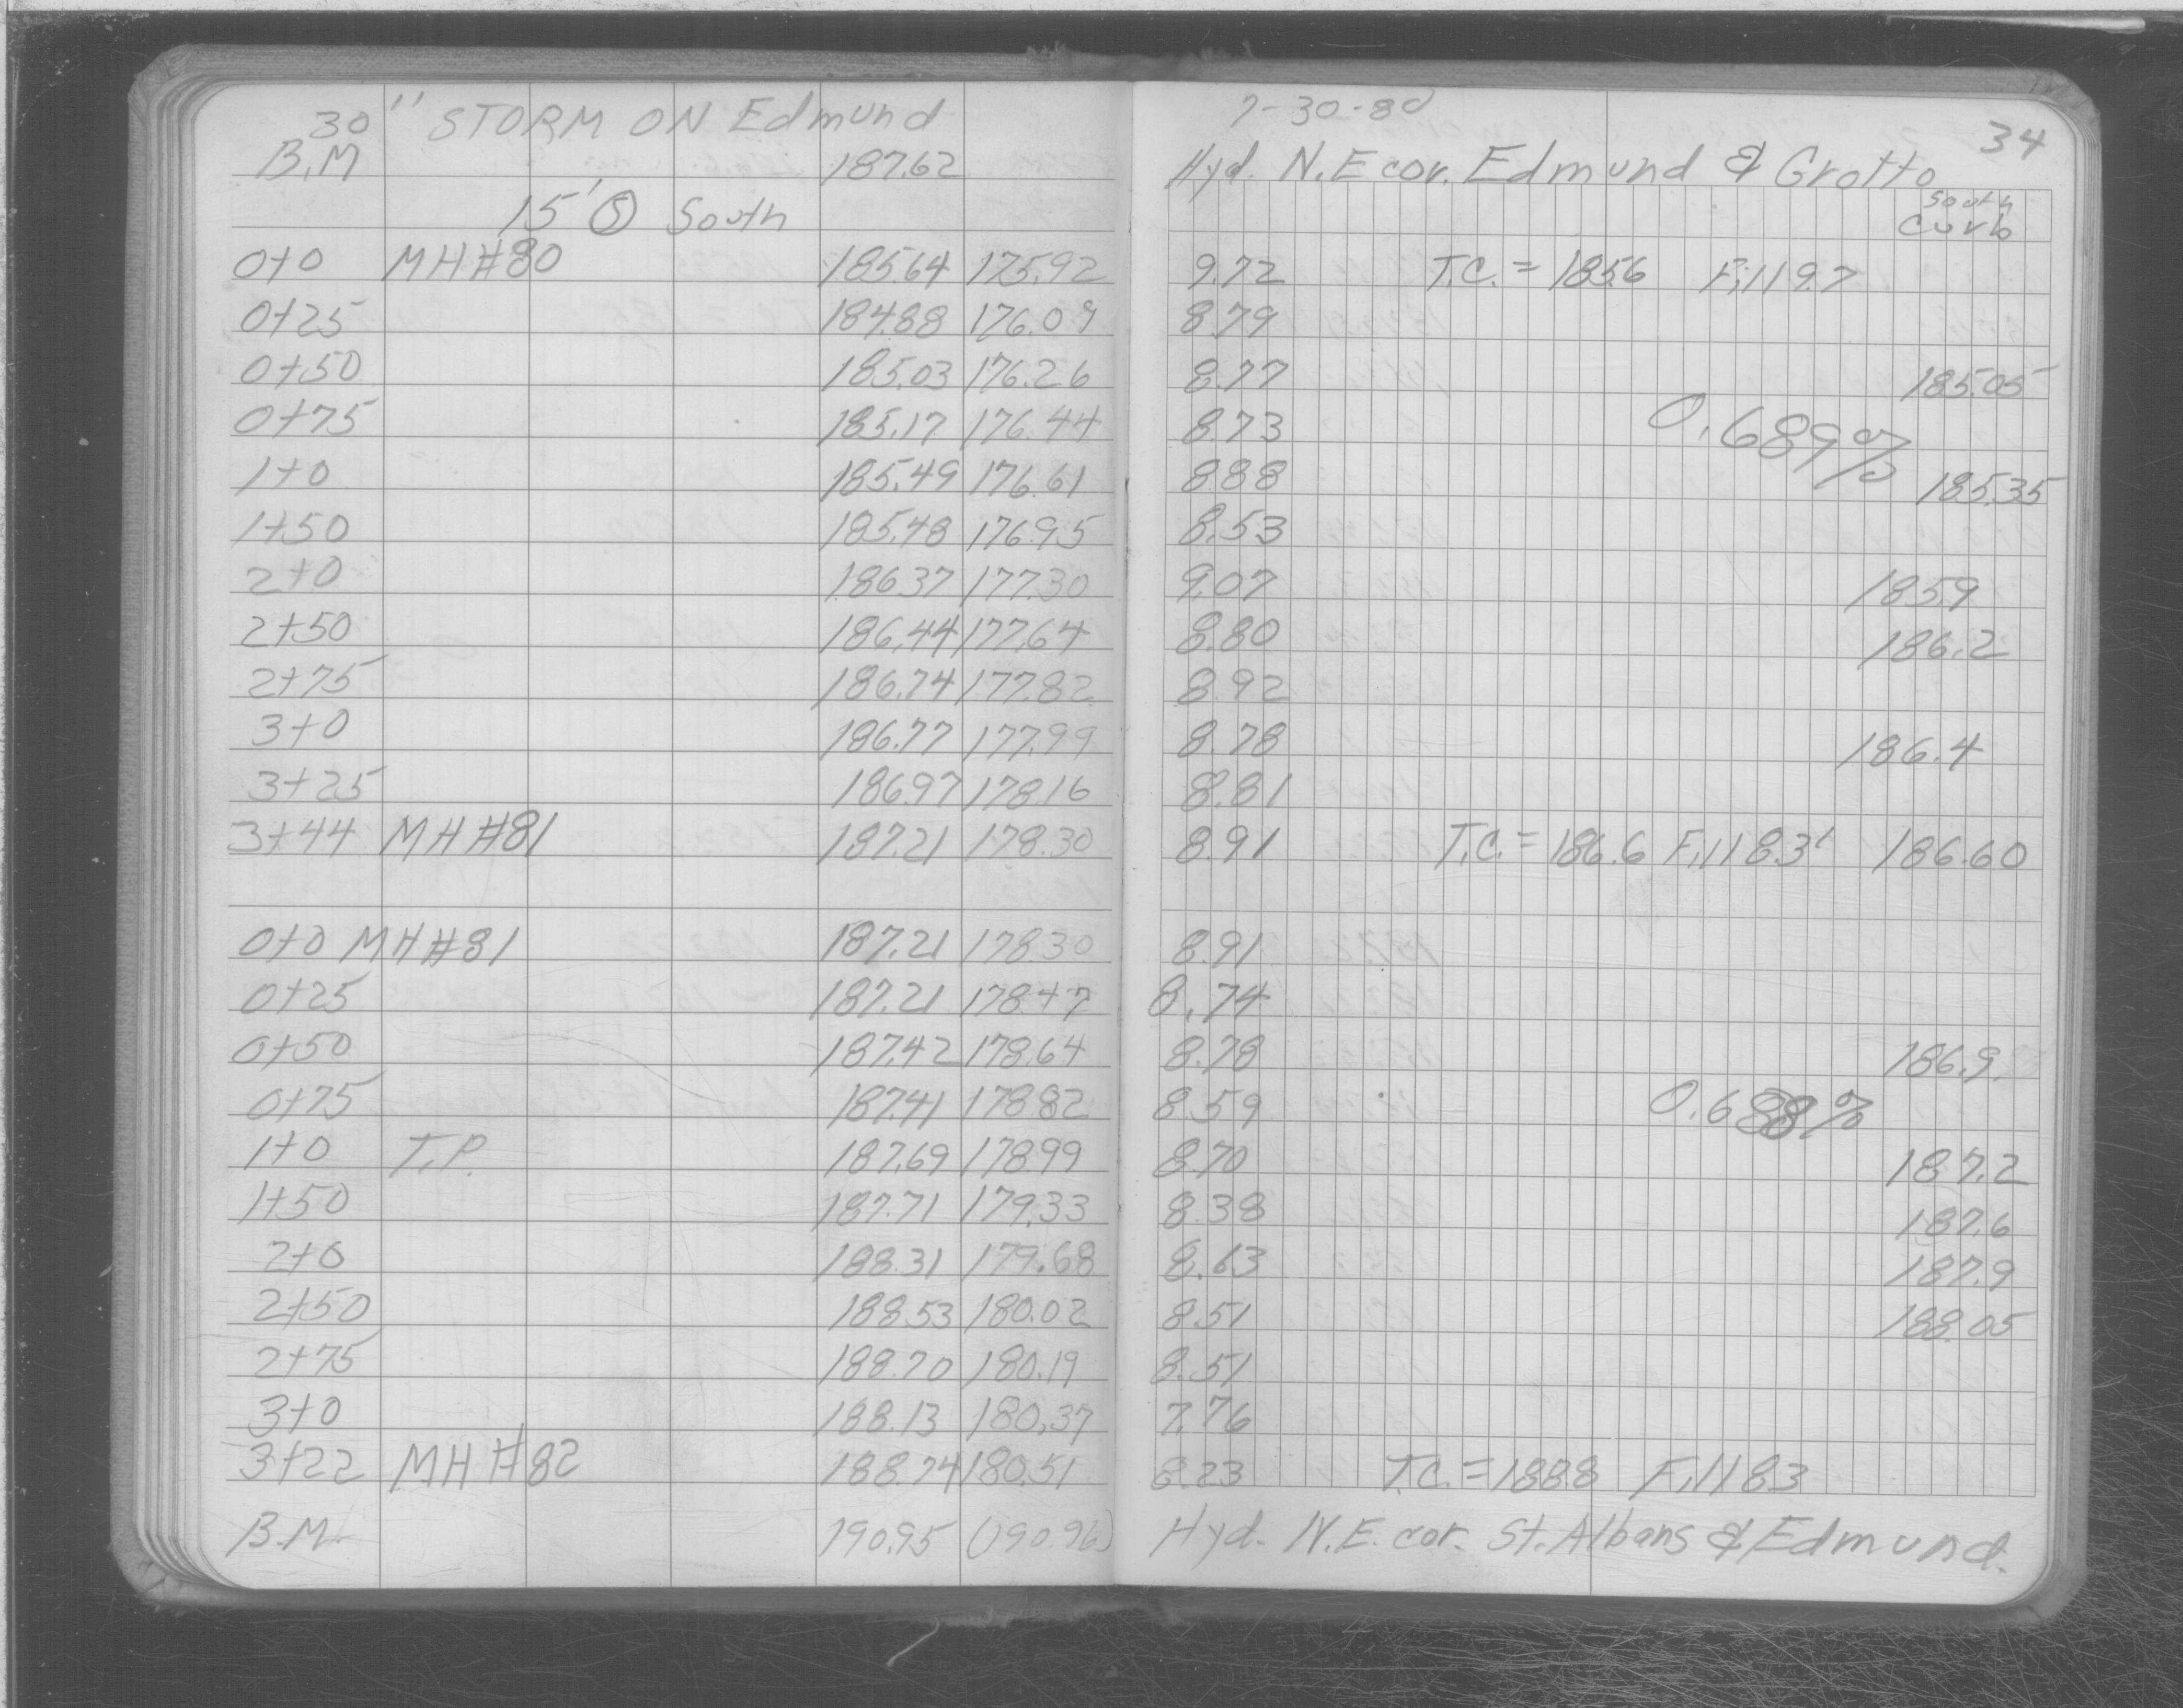 30" STORM ON Edmund 7-30-80 34
B.M 187.62 Hyd. N.E cor. Edmund & Grotto
15' Ⓢ South South Curb
0+0 MH#80 185.64 175.92 9.72 T.C. = 185.6 Fill 9.7
0+25 184.88 176.09 8.79
0+50 185.03 176.26 8.77 185.05
0+75 185.17 176.44 8.73 0.689%
1+0 185.49 176.61 8.88 185.35
1+50 185.48 176.95 8.53
2+0 186.37 177.30 9.07 185.9
2+50 186.44 177.64 8.80 186.2
2+75 186.74 177.82 8.92
3+0 186.77 177.99 8.78 186.4
3+25 186.97 178.16 8.81
3+44 MH#81 187.21 178.30 8.91 T.C. = 186.6 Fill 8.3' 186.60
0+0 MH#81 187.21 178.30 8.91
0+25 187.21 178.47 8.74
0+50 187.42 178.64 8.78 186.9
0+75 187.41 178.82 8.59 0.688%
1+0 T.P. 187.69 178.99 8.70 187.2
1+50 187.71 179.33 8.38 187.6
2+0 188.31 179.68 8.63 187.9
2+50 188.53 180.02 8.51 188.05
2+75 188.70 180.19 8.51
3+0 188.13 180.37 7.76
3+22 MH#82 188.74 180.51 8.23 T.C. = 188.8 Fill 8.3
B.M. 190.95 (190.96) Hyd. N.E. cor. St. Albans & Edmund.